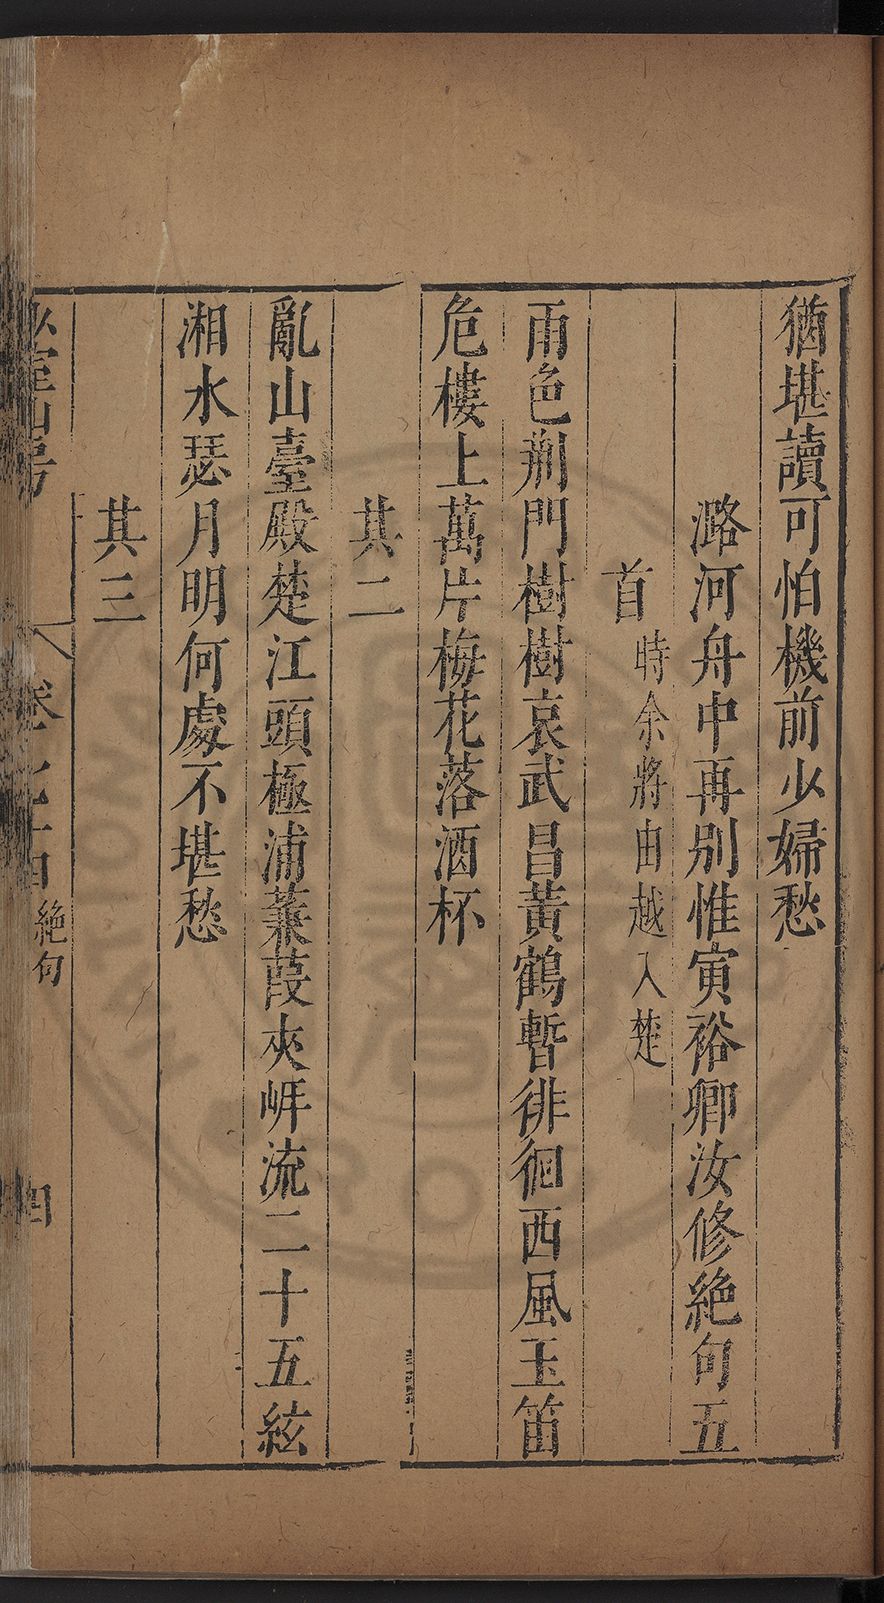 猶堪讀可怕機前少婦愁
潞河舟中再別惟寅裕卿汝修絶句五
首時余將由越入楚
雨色荆門樹樹哀武昌黃鶴暫徘徊西風玉笛
危樓上萬片梅花落酒杯
其二
亂山臺殿楚江頭極浦蒹葭夾岸流二十五絃
湘水瑟月明何處不堪愁
其三
山房
卷
絶句
四